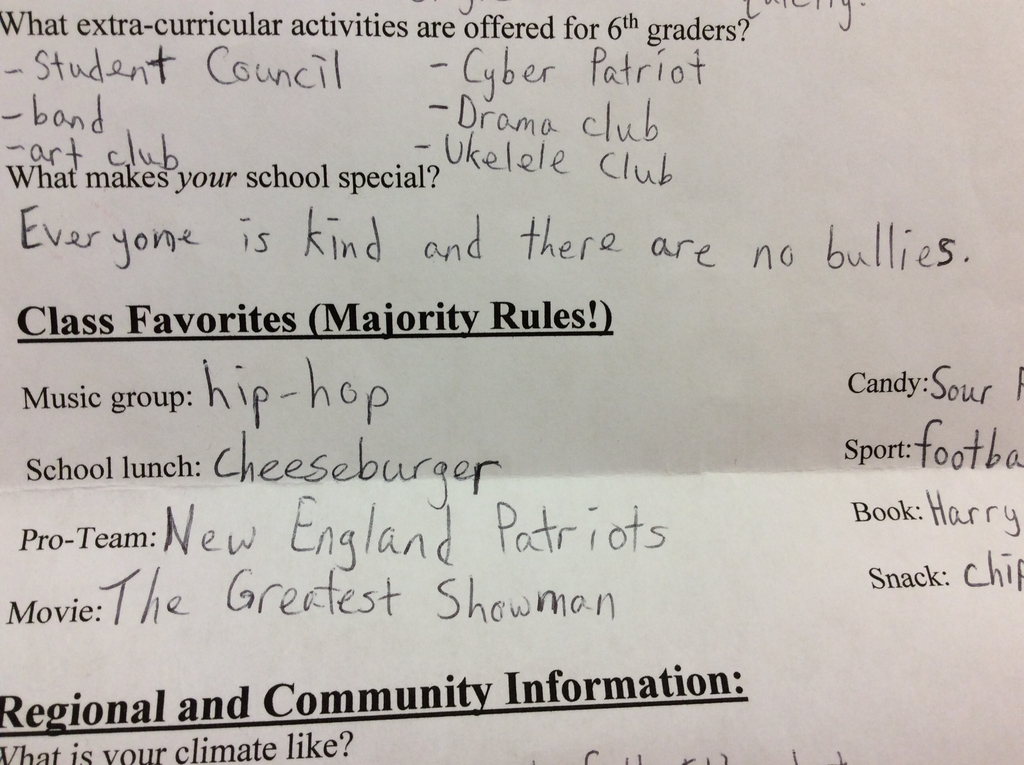 What extra-curricular activities are offered for 6th graders?
- Student Council - Cyber Patriot
- band - Drama club
- art club - Ukelele Club
What makes your school special?
Everyone is kind and there are no bullies.
Class Favorites (Majority Rules!)
Music group: hip-hop Candy: Sour
School lunch: Cheeseburger Sport: footba
Pro-Team: New England Patriots Book: Harry
Movie: The Greatest Showman Snack: chip
Regional and Community Information:
What is your climate like?